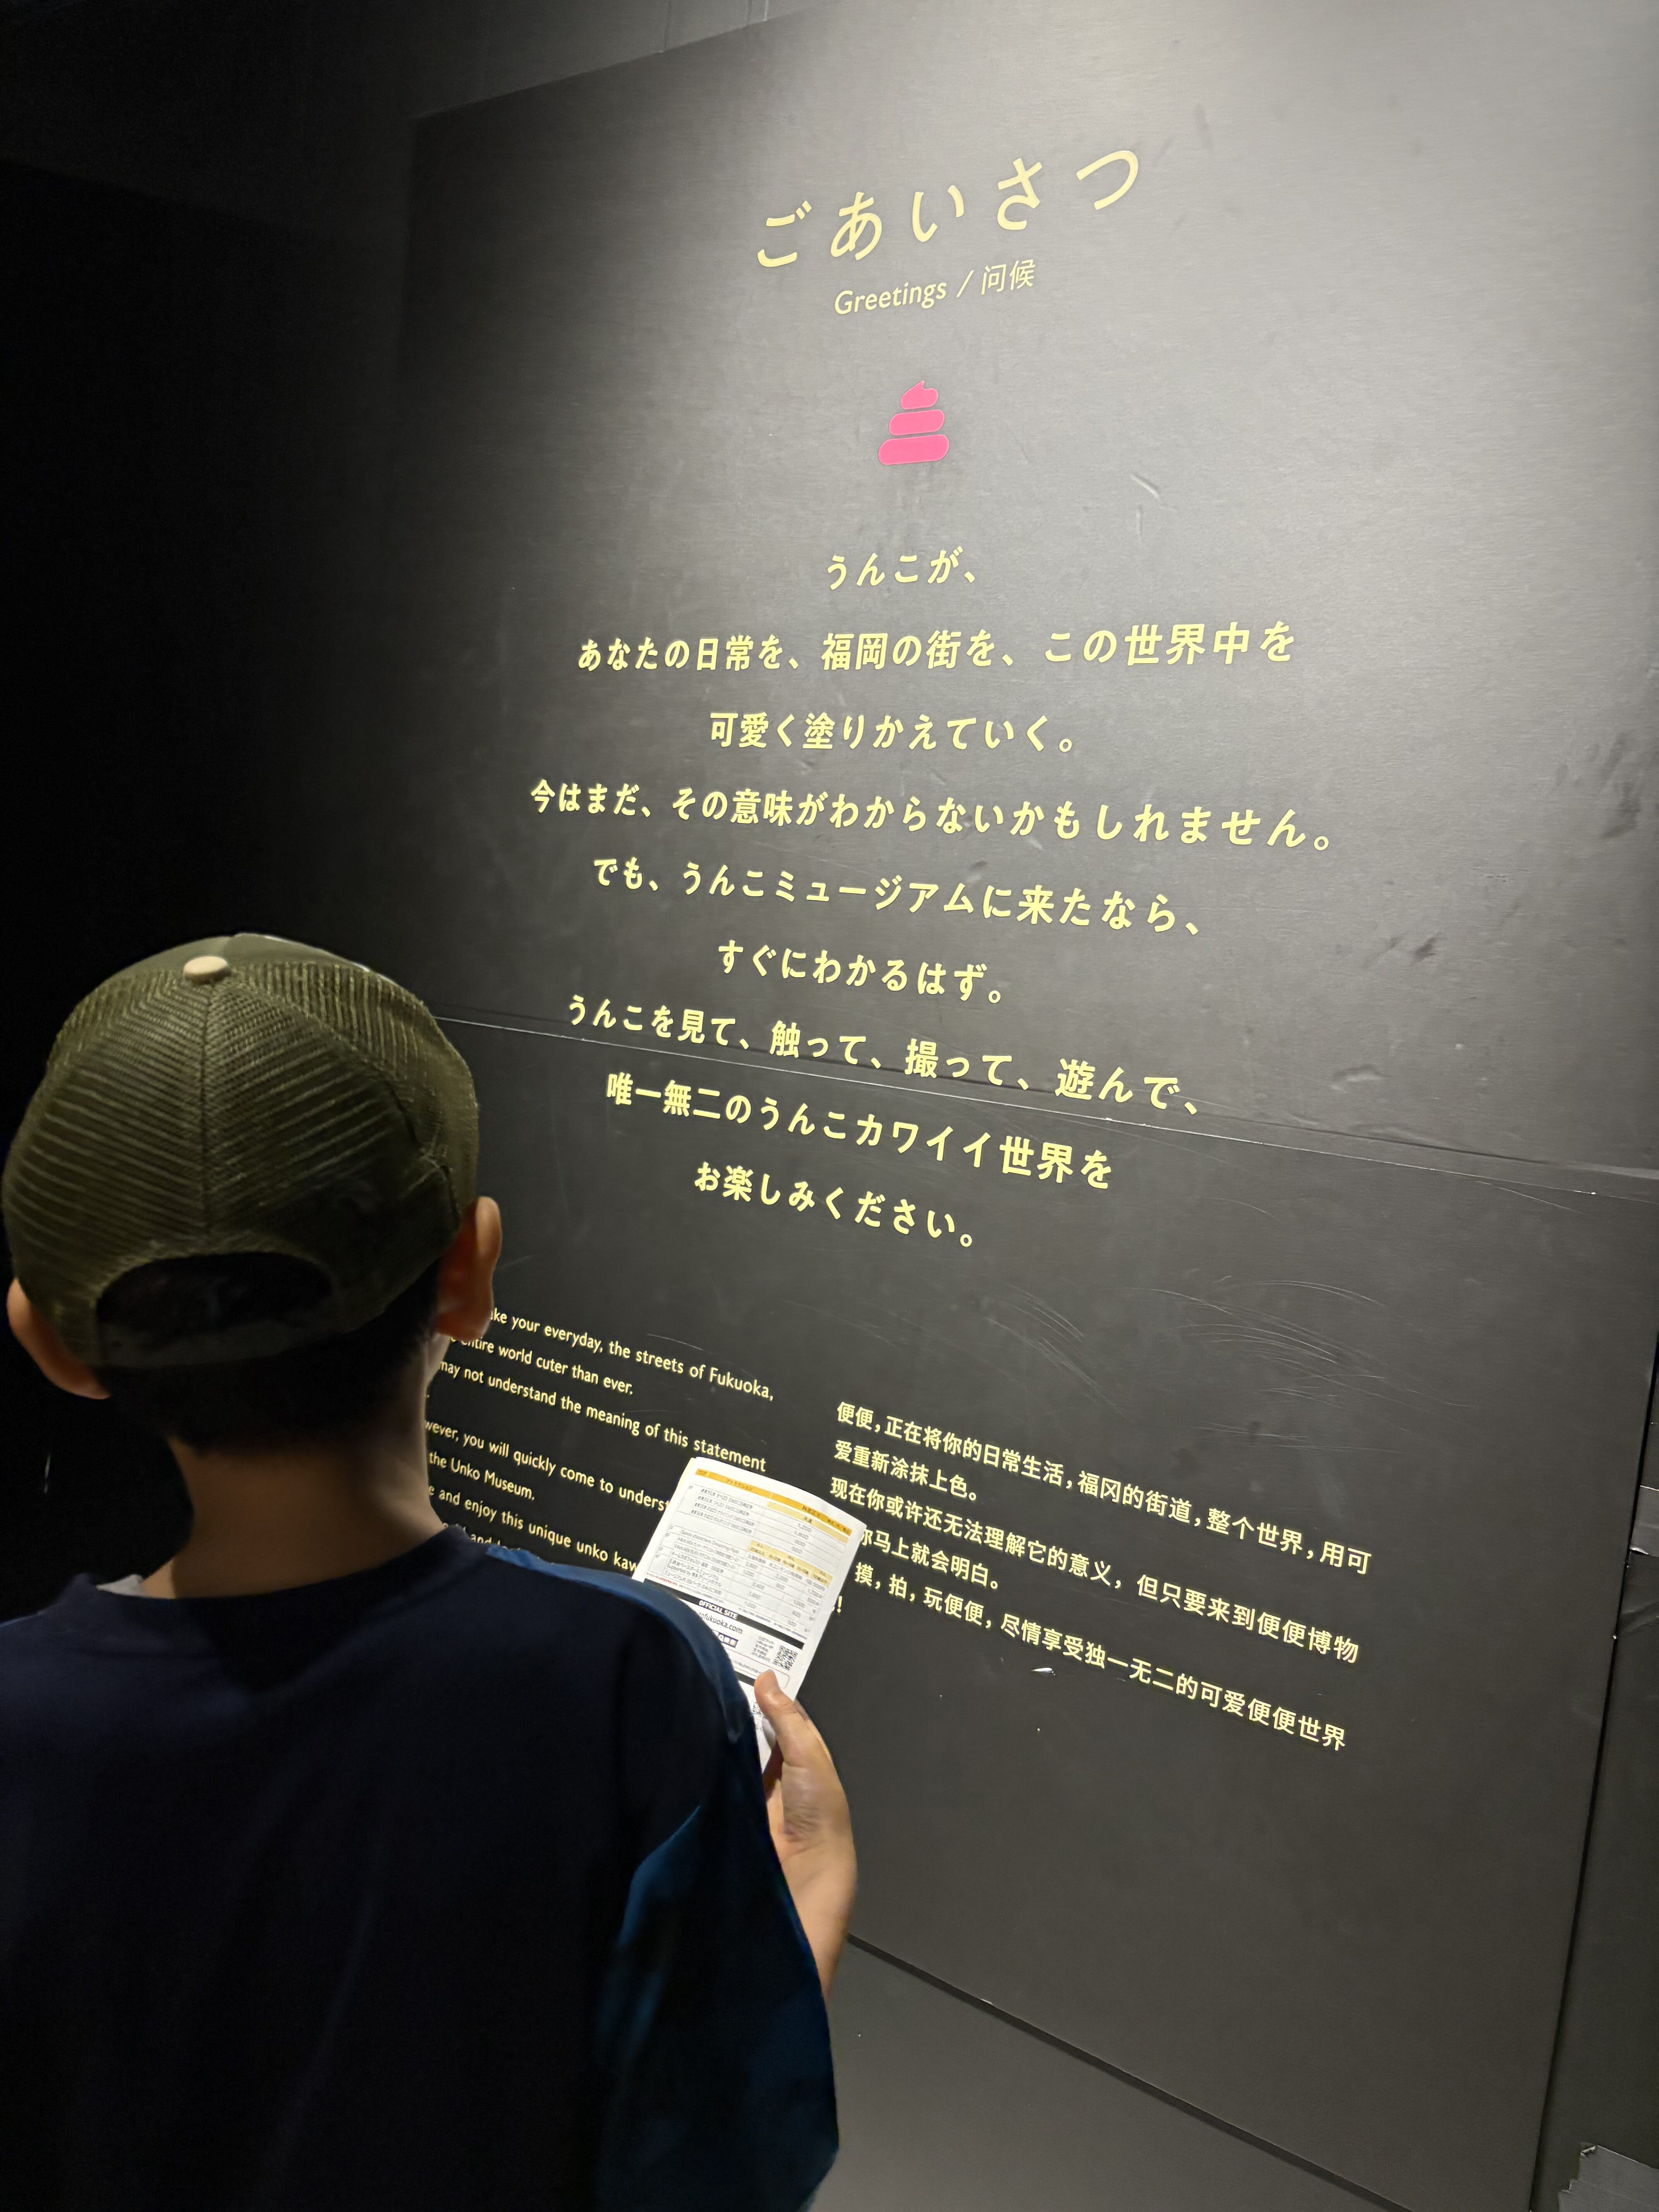 ごあいさつ
Greetings / 问候
うんこが、
あなたの日常を、福岡の街を、この世界中を
可愛く塗りかえていく。
今はまだ、その意味がわからないかもしれません。
でも、うんこミュージアムに来たなら、
すぐにわかるはず。
うんこを見て、触って、撮って、遊んで、
唯一無二のうんこカワイイ世界を
お楽しみください。
your everyday, the streets of Fukuoka,
entire world cuter than ever.
may not understand the meaning of this statement
you will quickly come to
the Unko Museum.
and enjoy this unique unko
便便,正在将你的日常生活,福冈的街道,整个世界,用可
爱重新涂抹上色。
现在你或许还无法理解它的意义，但只要来到便便博物
你马上就会明白。
摸，拍，玩便便，尽情享受独一无二的可爱便便世界
!
OFFICIAL SITE